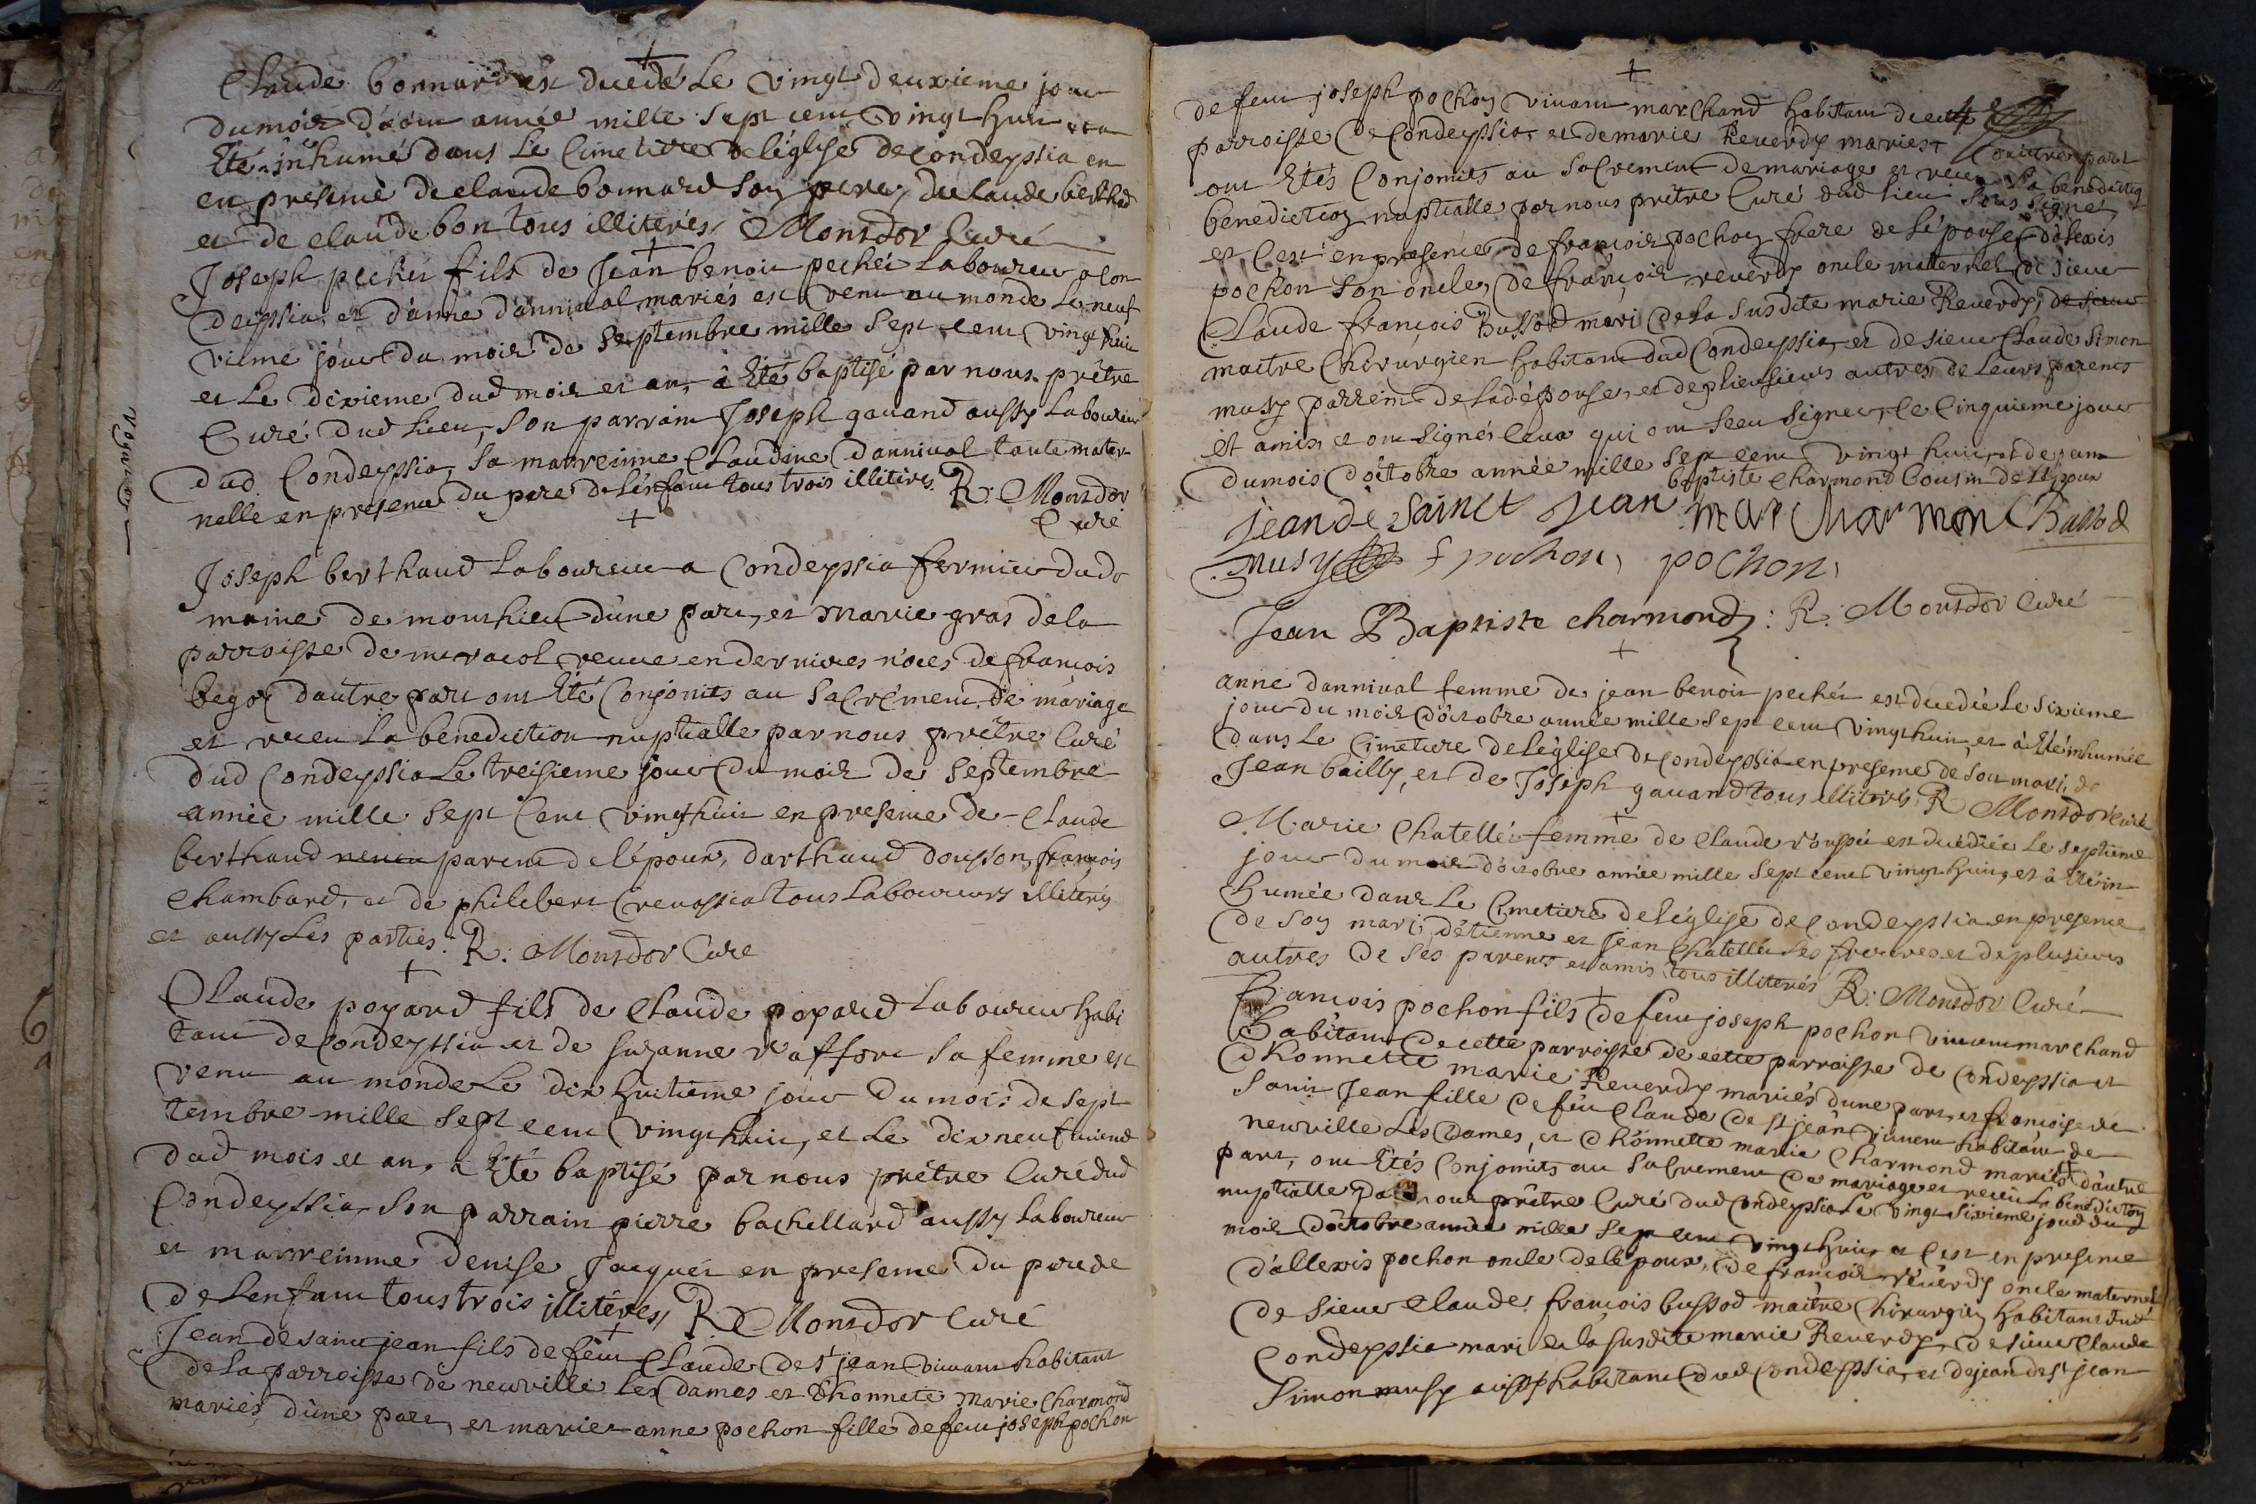 Claude bonnard est decedé Le vingt deuxieme jour
du mois d'aout année mille sept cent vingt huit et a
Eté inhumé dans Le Cimetiere de l'église de condeyssia en
en presence de claude bonnard son pere, de claude berthod
et de claude bon tous illiterés Monsdor Curé
Joseph pechei fils de Jean benoit pechei Laboureur a Con
deyssia, et d'anne dannival mariés est venu au monde Le neuf
vieme jour du mois de septembre mille sept cent vingt huit
et Le dixieme dud mois et an, à Eté baptisé par nous prêtre
Curé dud lieu, son parrain Joseph gavand aussy Laboureur
dud Condeyssia, sa marreinne Claudine dannival tante mater
nelle en presence du pere de L'enfant tous trois illiterés R: Monsdor
Curé
Joseph berthaud Laboureur a Condeyssia fermier du do
maine de monthieu d'une part, et Marie gras de la
parroisse de veuve en dernieres noces de francois
begoz dautre part ont Eté Conjoints au sacrement de mariage
et receu La benediction nuptialle par nous prêtre Curé
dud Condeyssia Le treisieme jour du mois de septembre
année mille sept Cent vingt huit en presence de Claude
berthaud parent de l'époux, darthaud dousson, francois
Chambard, et de philebert Crevassia tous Laboureurs illiterés
et aussy Les parties. R: Monsdor Cure
Claude poyard fils de Claude poyard Laboureur habi
tant de Condeyssia et de suzanne vaffort sa femme est
venu au monde Le dix huitieme jour du mois de sept
tembre mille sept cent vingt huit, et Le dix neuf vieme
dud mois et an, a Eté baptisé par nous prêtre Curé dud
Condeyssia, son parrain pierre bachellard aussy Laboureur
et marreinne denise Jacquet en presence du pere de
de Lenfant tous trois illitéres, R. Monsdor Curé
Jean de saint jean fils de feu Claude de st jean vivant habitant
de la parroisse de neuville Les Dames et d'honnete Marie Charmond
mariés d'une part, et marie anne pochon fille de feu joseph pochon
de feu joseph pochon vivant marchand habitant de cette
parroisse de Condeyssia et de marie Reverdy mariés d'autre part
ont Etés Conjoints au sacrement de mariage et receu La benediction
benediction nuptialle par nous prêtre Curé dud lieu sous signé
et c'est en presence de francois pochon frere de l'épouse d'alexis
pochon son oncle, de francois reverdy oncle maternel de sieur
Claude francois Bussod mari de la susdite marie Reverdy, de sieur
maitre Chirurgien habitant dud Condeyssia, et de sieur Claude Simon
musy parrein de lad épouse, et de plieusieurs autres de Leurs parents
et amis, et ont signés Ceux qui ont sceu signer, le Cinquieme jour
du mois d'octobre année mille sept cent vingt huit, et de jean
baptiste Charmond Cousin de l'époux
jean de sainct jean mar charmon Bussod
Musy f pochon, pochon,
Jean Baptiste charmond: R: Monsdor Curé
anne dannival femme de jean benoit pechei est decedée Le sixieme
jour du mois d'octobre année mille sept cent vingt huit, et à Eté inhumée
dans Le Cimetiere de l'église de condeyssia en presence de son mari, de
Jean bailly, et de Joseph gavand tous illiterés R Monsdor Curé
Marie Chatellei femme de Claude est decedée Le septieme
jour du mois d'octobre année mille sept cent vingt huit, et à Eté in
humée dans Le Cimetiere de l'église de Condeyssia en presence
de son mari, d'étienne et jean Chatellei ses freres et de plusieurs
autres de ses parents et amis tous illiterés R: Monsdor Curé
Francois pochon fils de feu joseph pochon vivant marchand
habitant de cette parroisse de cette parroisse de Condeyssia et
d'honnette marie Reverdy mariés d'une part, et francoise de
saint Jean fille de feu Claude de st jean vivant habitant de
neuville Les Dames, et d'honnette marie Charmond mariés d'autre
part, ont Etés Conjoints au sacrement de mariage et receu La benediction
nuptialle par nous prêtre Curé dud Condeyssia Le vingt sixieme jour du
mois d'octobre année mille sept cent vingt huit, et c'est en presence
d'allexis pochon oncle de l'époux, de francois reverdy oncle maternel
de sieur Claude francois bussod maitre Chirurgien habitant dud
Condeyssia mari de la susdite marie Reverdy, de sieur Claude
Simon musy aussy habitant dud Condeyssia, et de jean de st jean